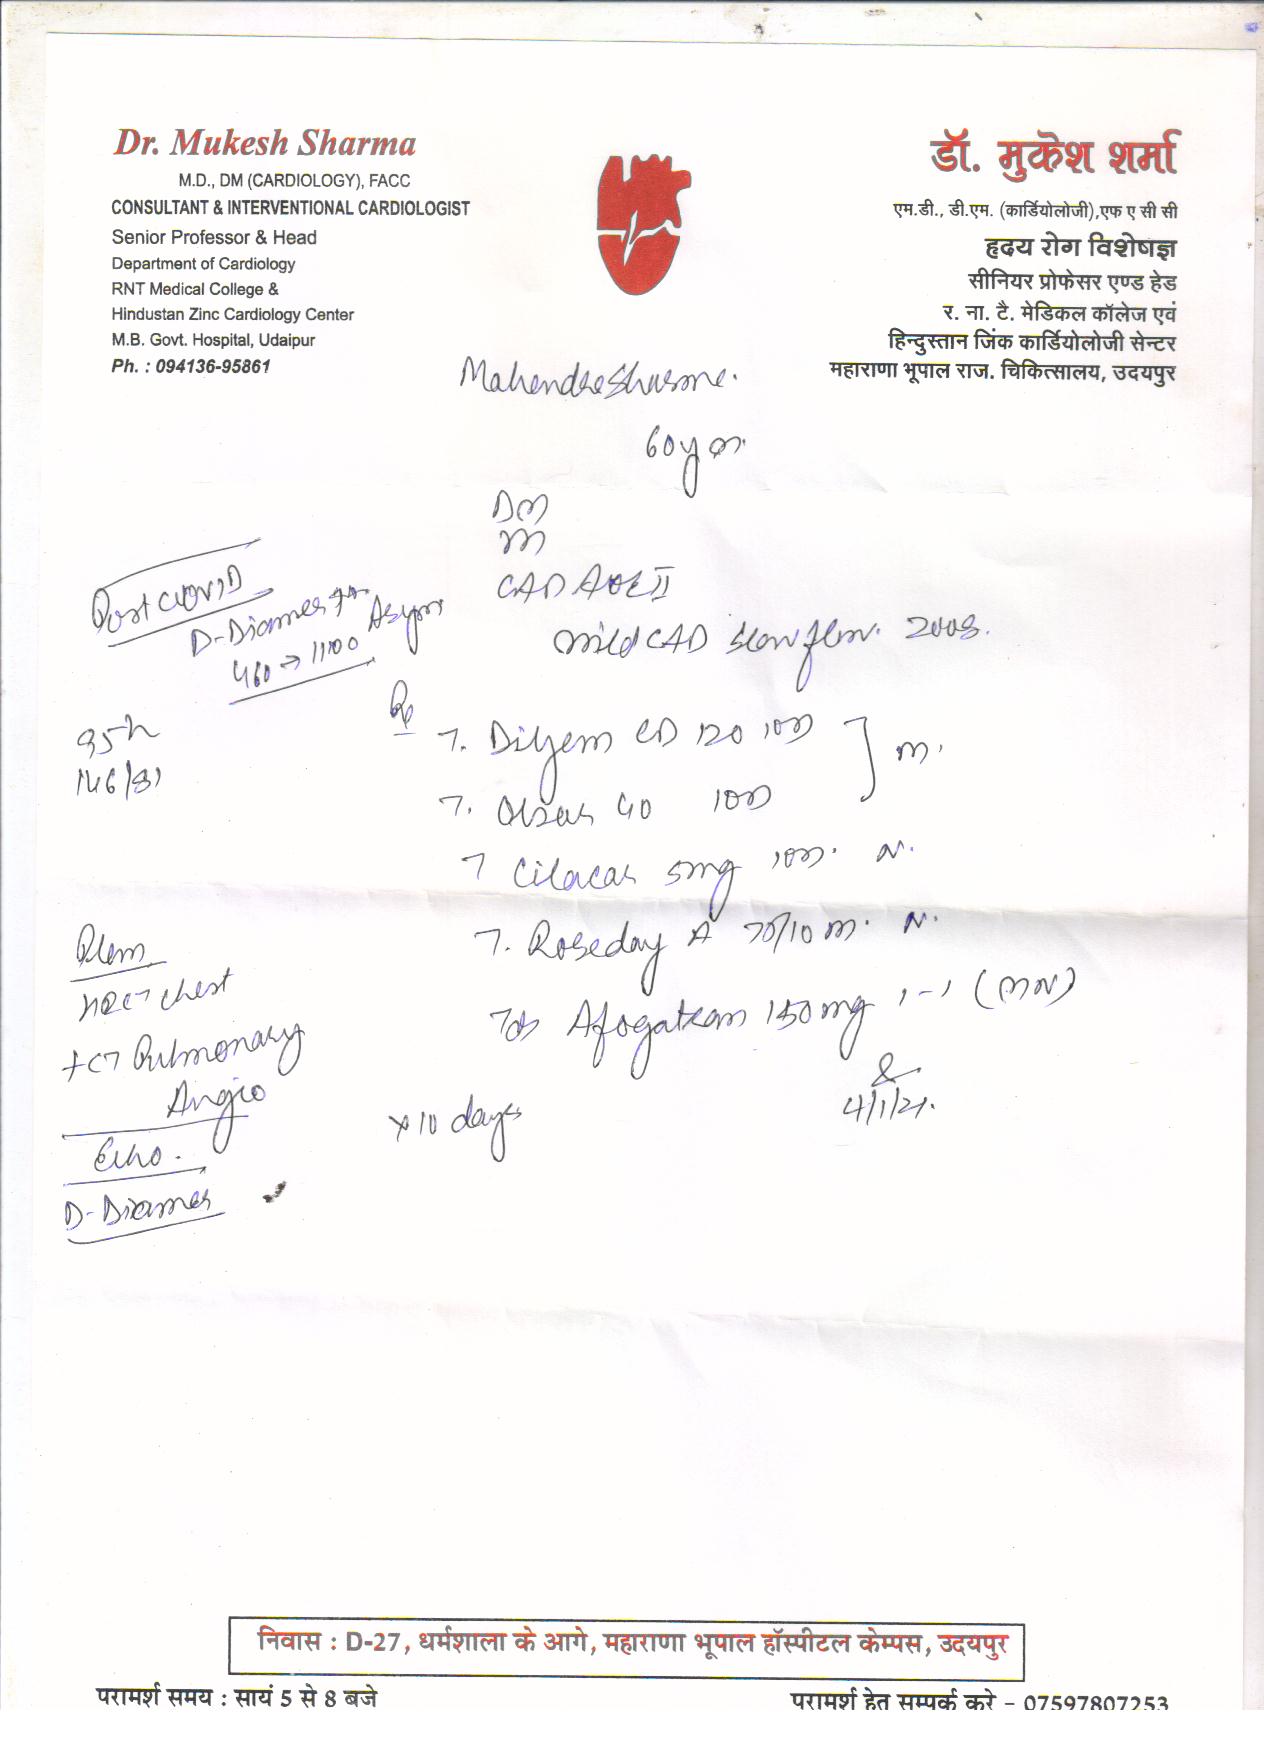 Dr. Mukesh Sharma
M.D., DM (CARDIOLOGY), FACC
CONSULTANT & INTERVENTIONAL CARDIOLOGIST
Senior Professor & Head
Department of Cardiology
RNT Medical College &
Hindustan Zinc Cardiology Center
M.B. Govt. Hospital, Udaipur
Ph. : 094136-95861
डॉ. मुकेश शर्मा
एम.डी., डी.एम. (कार्डियोलोजी),एफ ए सी सी
हृदय रोग विशेषज्ञ
सीनियर प्रोफेसर एण्ड हेड
र. ना. टै. मेडिकल कॉलेज एवं
हिन्दुस्तान जिंक कार्डियोलोजी सेन्टर
महाराणा भूपाल राज. चिकित्सालय, उदयपुर
Mahendra Sharma.
60y m.
DM
CAD AOE II
Mild CAD slow flow. 2008.
Post COVID
D-Dimer
460 → 1100
146/81
Rx
T. Dilzem CD 120 1 OD
T. Olsar 40 1 OD
M.
T Cilacar 5mg 1 OD. N.
T. Roseday A /10 N.
Afogatran 150mg 1-1 (MN)
4/1/21.
x 10 days
Plan
HRCT Chest
+ CT Pulmonary
Angio
Echo.
D-Dimer
निवास : D-27, धर्मशाला के आगे, महाराणा भूपाल हॉस्पीटल केम्पस, उदयपुर
परामर्श समय : सायं 5 से 8 बजे
परामर्श हेतु सम्पर्क करे - 07597807253